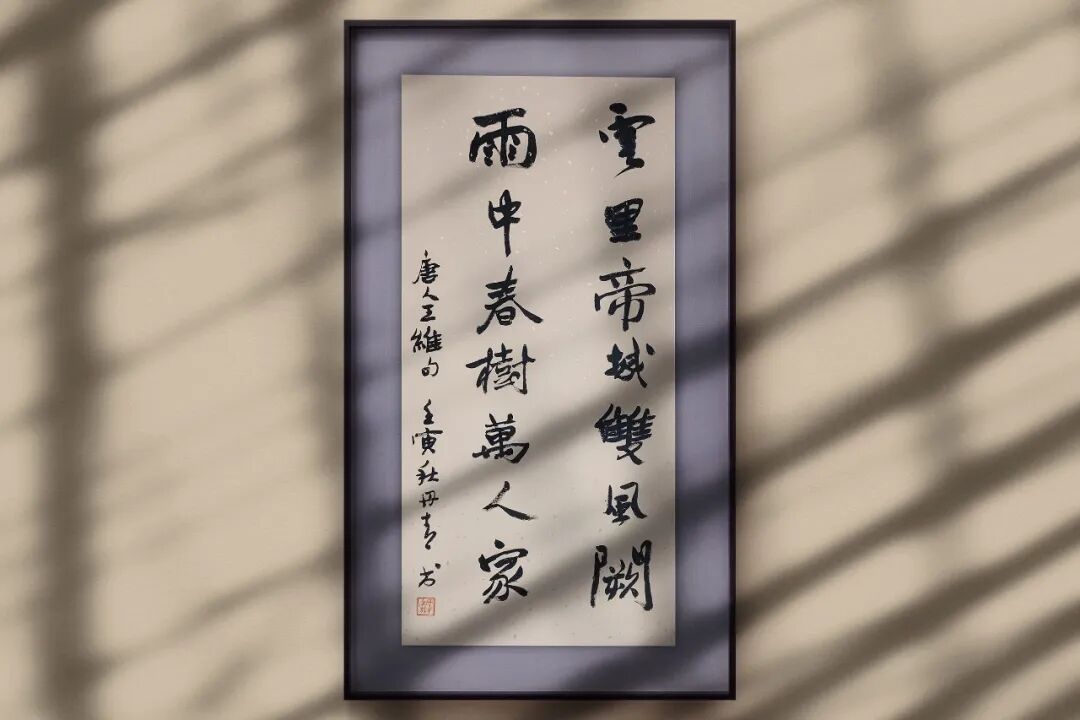 雲里帝城雙風闕
雨中春樹萬人家
唐人王維句 壬寅秋丹青书